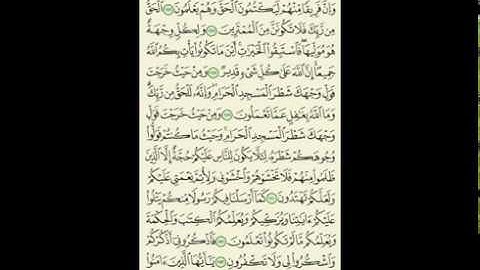 وَإِنَّ فَرِيقًا مِّنْهُمْ لَيَكْتُمُونَ ٱلْحَقَّ وَهُمْ يَعْلَمُونَ ٱلْحَقُّ
مِن رَّبِّكَ فَلَا تَكُونَنَّ مِنَ ٱلْمُمْتَرِينَ وَلِكُلٍّ وِجْهَةٌ
هُوَ مُوَلِّيهَا ۖ فَٱسْتَبِقُوا۟ ٱلْخَيْرَٰتِ ۚ أَيْنَ مَا تَكُونُوا۟ يَأْتِ بِكُمُ ٱللَّهُ
جَمِيعًا ۚ إِنَّ ٱللَّهَ عَلَىٰ كُلِّ شَىْءٍ قَدِيرٌ وَمِنْ حَيْثُ خَرَجْتَ
فَوَلِّ وَجْهَكَ شَطْرَ ٱلْمَسْجِدِ ٱلْحَرَامِ ۖ وَإِنَّهُۥ لَلْحَقُّ مِن رَّبِّكَ ۗ
وَمَا ٱللَّهُ بِغَٰفِلٍ عَمَّا تَعْمَلُونَ وَمِنْ حَيْثُ خَرَجْتَ فَوَلِّ
وَجْهَكَ شَطْرَ ٱلْمَسْجِدِ ٱلْحَرَامِ ۚ وَحَيْثُ مَا كُنتُمْ فَوَلُّوا۟
وُجُوهَكُمْ شَطْرَهُۥ لِئَلَّا يَكُونَ لِلنَّاسِ عَلَيْكُمْ حُجَّةٌ إِلَّا ٱلَّذِينَ
ظَلَمُوا۟ مِنْهُمْ فَلَا تَخْشَوْهُمْ وَٱخْشَوْنِى وَلِأُتِمَّ نِعْمَتِى عَلَيْكُمْ
وَلَعَلَّكُمْ تَهْتَدُونَ كَمَآ أَرْسَلْنَا فِيكُمْ رَسُولًا مِّنكُمْ يَتْلُوا۟
عَلَيْكُمْ ءَايَٰتِنَا وَيُزَكِّيكُمْ وَيُعَلِّمُكُمُ ٱلْكِتَٰبَ وَٱلْحِكْمَةَ
وَيُعَلِّمُكُم مَّا لَمْ تَكُونُوا۟ تَعْلَمُونَ فَٱذْكُرُونِىٓ أَذْكُرْكُمْ
وَٱشْكُرُوا۟ لِى وَلَا تَكْفُرُونِ يَٰٓأَيُّهَا ٱلَّذِينَ ءَامَنُوا۟